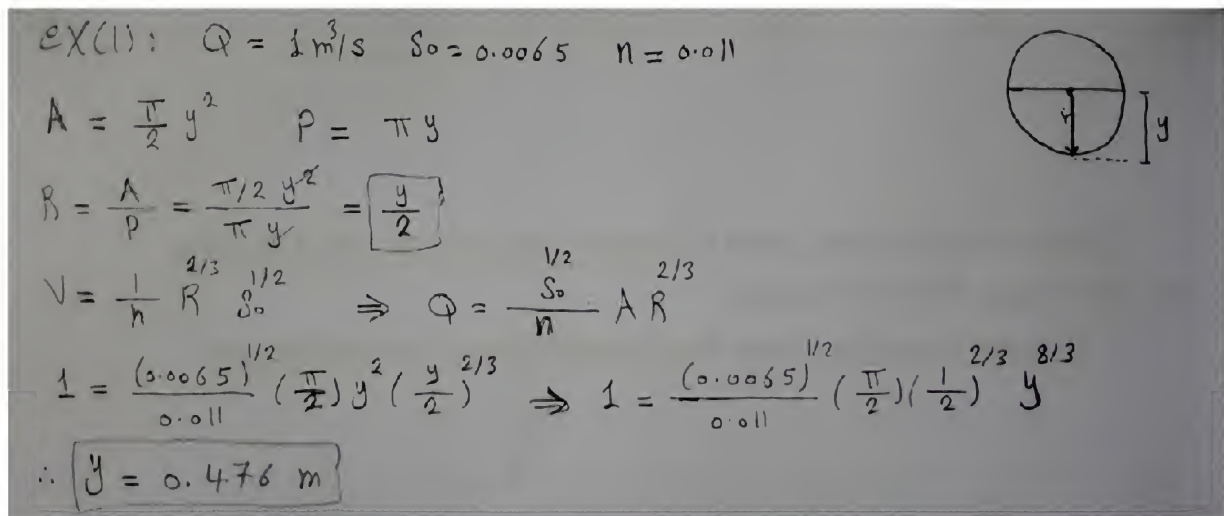 ex(1): Q = 1 m³/s S₀ = 0.0065 n = 0.011
A = π/2 y² P = π y
r y
R = A/P = (π/2 y²)/(π y) = y/2
V = 1/n R^2/3 S₀^1/2 ⇒ Q = S₀^1/2 / n A R^2/3
1 = (0.0065)^1/2 / 0.011 (π/2) y² (y/2)^2/3 ⇒ 1 = (0.0065)^1/2 / 0.011 (π/2)(1/2)^2/3 y^8/3
∴ y = 0.476 m